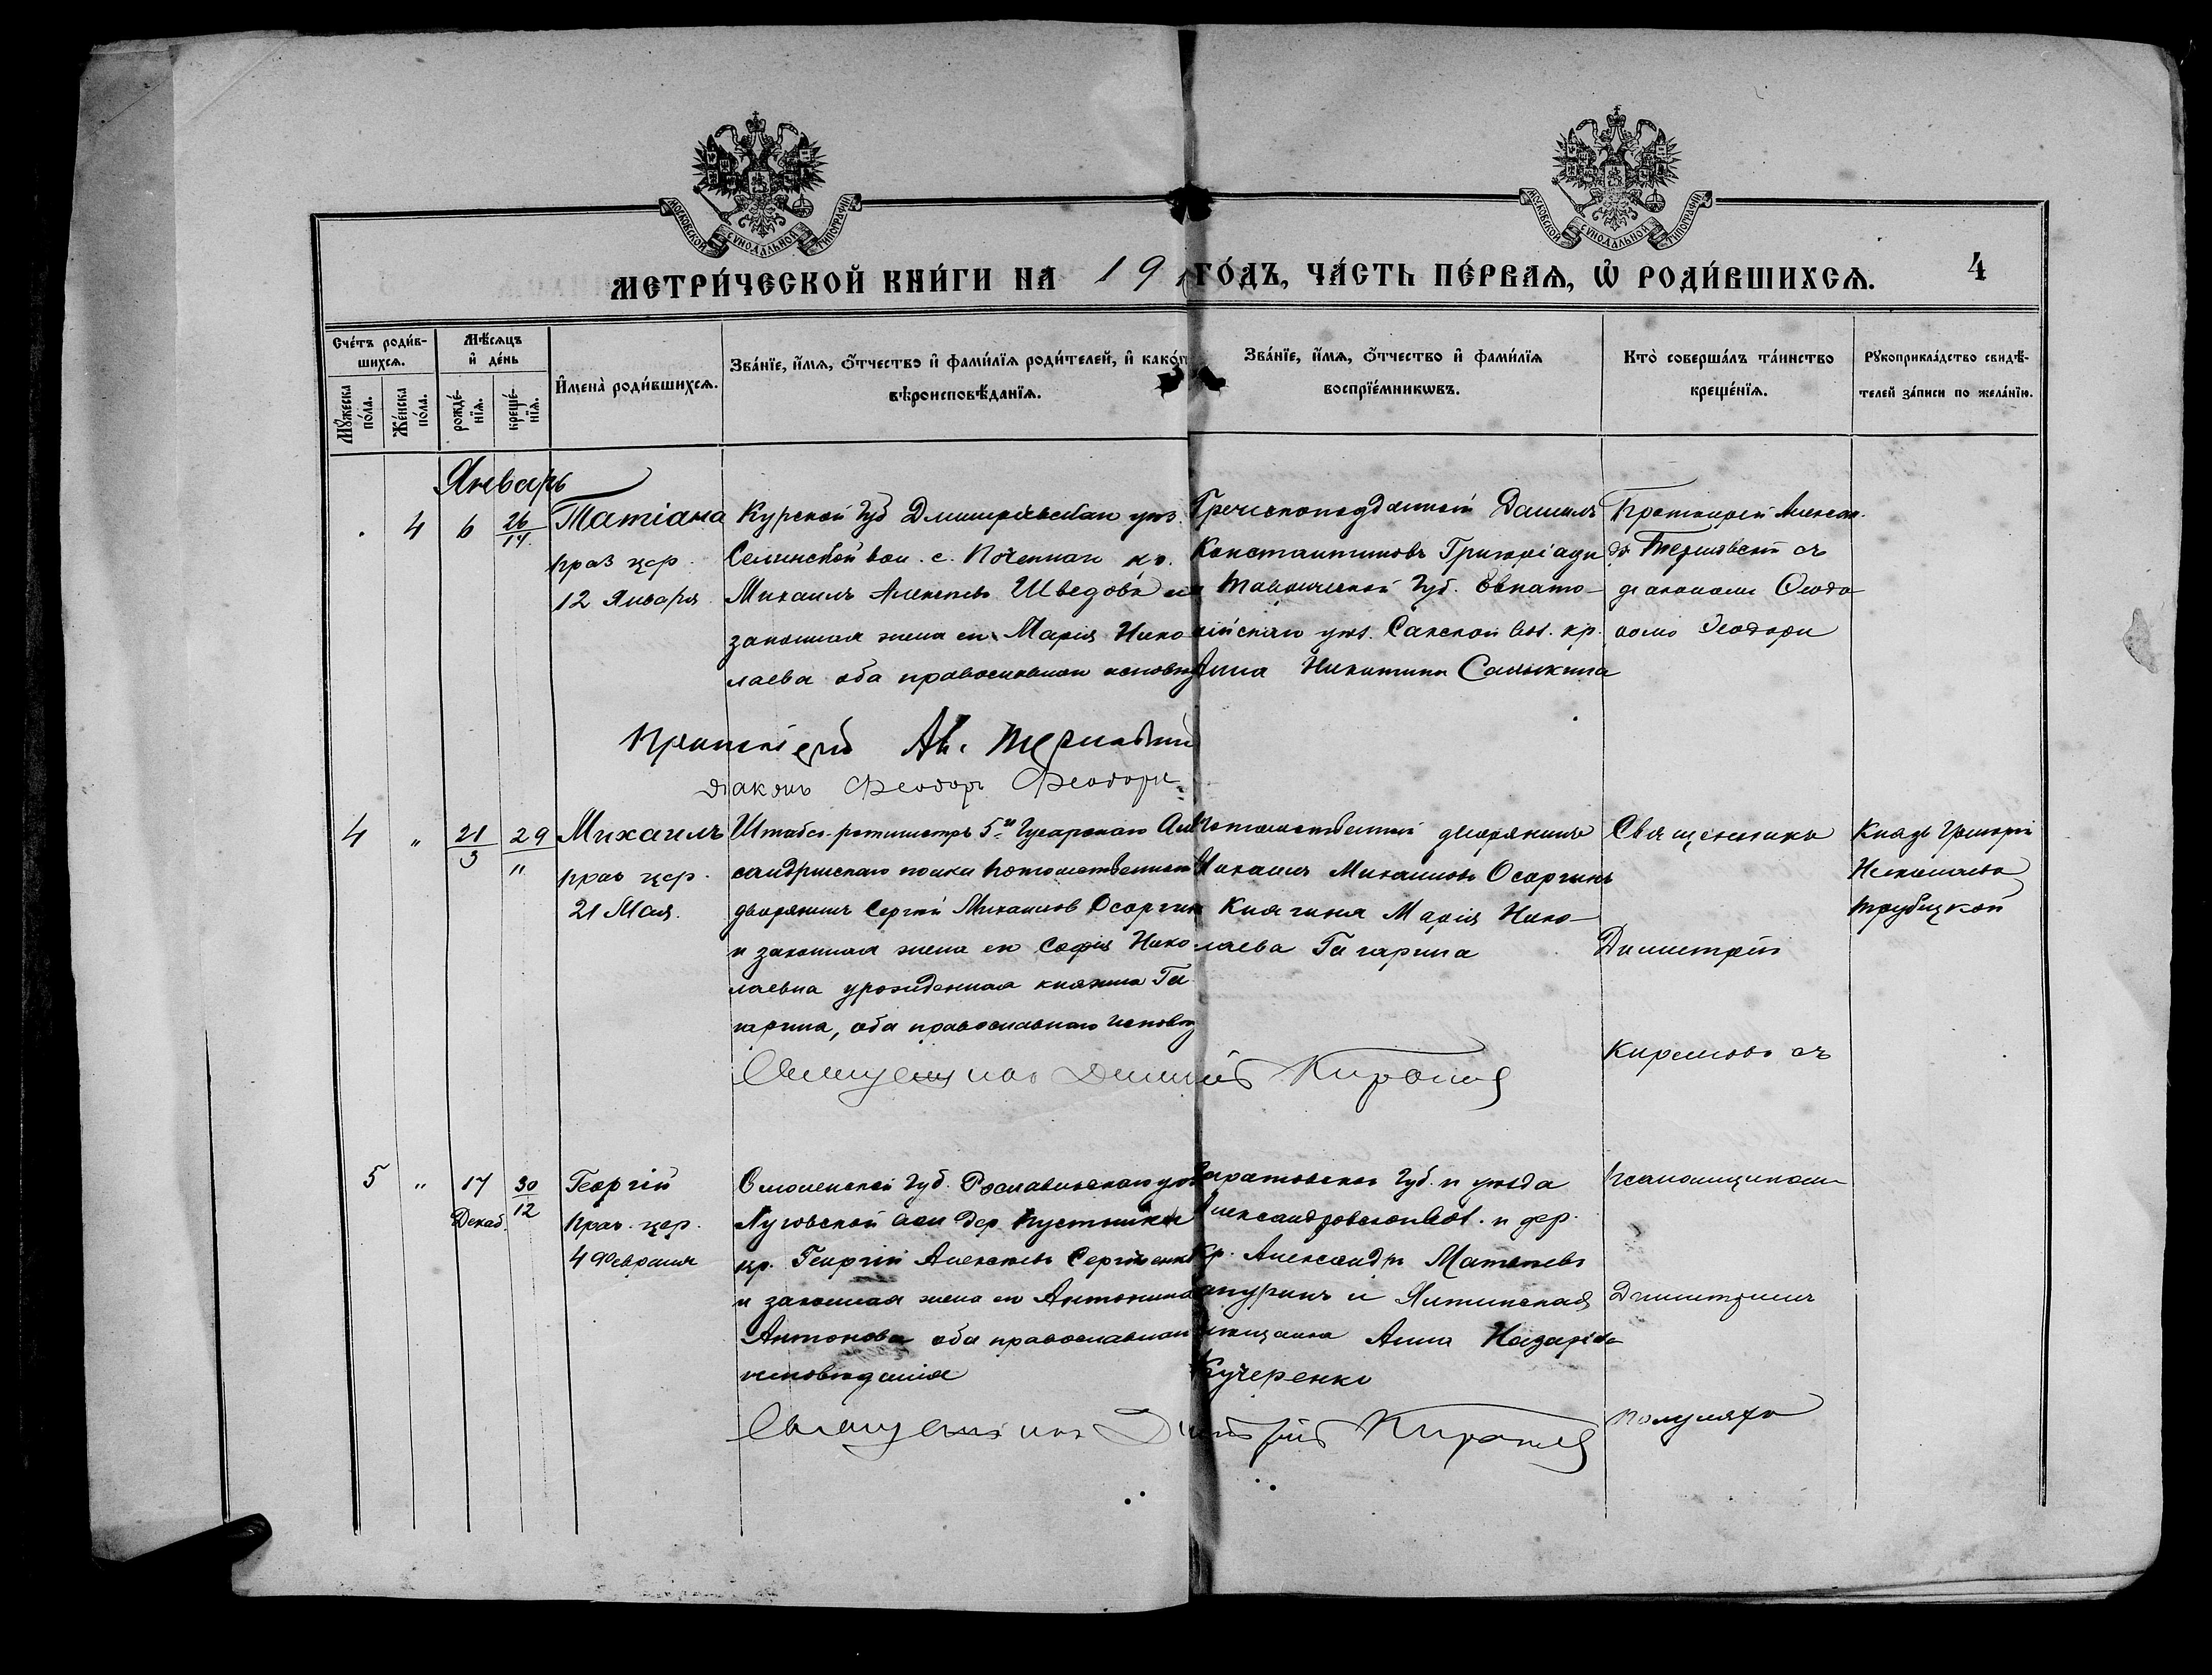 МОСКОВСКОЙ СѴНОДАЛЬНОЙ ТИПОГРАФІИ
МОСКОВСКОЙ СѴНОДАЛЬНОЙ ТИПОГРАФІИ
МЕТРИ́ЧЕСКОЙ КНИ́ГИ НА 19 ГО́ДЪ, ЧА́СТЬ ПЕ́РВАѦ, Ѡ РОДИ́ВШИХСѦ. 4
Сче́тъ роди́в-
шихсѧ.
Мꙋ́жеска по́ла.
Же́нска по́ла.
Мѣ́сѧцъ
и҆ де́нь
рожде́-
нїѧ.
креще́-
нїѧ.
И҆мена̀ роди́вшихсѧ.
Зва́нїе, и҆́мѧ, ѻ҆́тчество и҆ фами́лїѧ роди́телей, и҆ како́гѡ
вѣроисповѣ́данїѧ.
Зва́нїе, и҆́мѧ, ѻ҆́тчество и҆ фами́лїѧ
воспрїе́мникѡвъ.
Кто̀ соверша́лъ та́инство
креще́нїѧ.
Рꙋкоприкла́дство свидѣ́-
телей за́писи по жела́нїю.
Январь
4 6 26/14
Татіана
праз цер.
12 Января
Курской Губ Дмитріевскаго уѣз.
вол. с. кр.
Михаилъ Алексѣевъ Шведовъ и
законная жена его Марія Нико
лаева оба православнаго исповѣд
Греческоподданный Даніилъ
Константиновъ Григоріади
и Таврической Губ. Евпато-
рійскаго уѣз. Сакской вол. кр.
Анна Никитина
Протоіерей Алексан-
дръ Терновскій съ
діакономъ Ѳеодо
ромъ Ѳеодори
Протоіерей Ал. Терновскій
діаконъ Феодоръ Феодори
4 " 21/3 29/"
Михаилъ
праз цер.
21 Мая.
Штабсъ-ротмистръ 5го Гусарскаго Алек
сандрійскаго полка потомственный
дворянинъ Сергѣй Михаиловъ Осоргинъ
и законная жена его Софія Нико
лаевна урожденная княжна Га
гарина, оба православнаго исповѣд
Потомственный дворянинъ
Михаилъ Михаиловъ Осоргинъ
и Княгиня Марія Нико-
лаева Гагарина
Священникъ
Димитрій
Кирановъ съ
Князь Григорій
Николаевъ
Трубецкой
Священникъ Димитрій Кирановъ
5 " 17 Декаб. 30/12
Георгій
праз. цер.
4 Февраля
Смоленской Губ. Рославльскаго уѣз
Луговской вол дер Пустошки
кр. Георгій Алексѣевъ
и законная жена его Антонина
Антонова оба православнаго
исповѣданія
Саратовской Губ. и уѣзда
Александровской вол. и дер.
кр. Александръ Матвѣевъ
и Ялтинская
мѣщанка Анна Назарова
Кучеренко
псаломщикомъ
Димитріемъ
Полуляхъ
Священникъ Димитрій Кирановъ